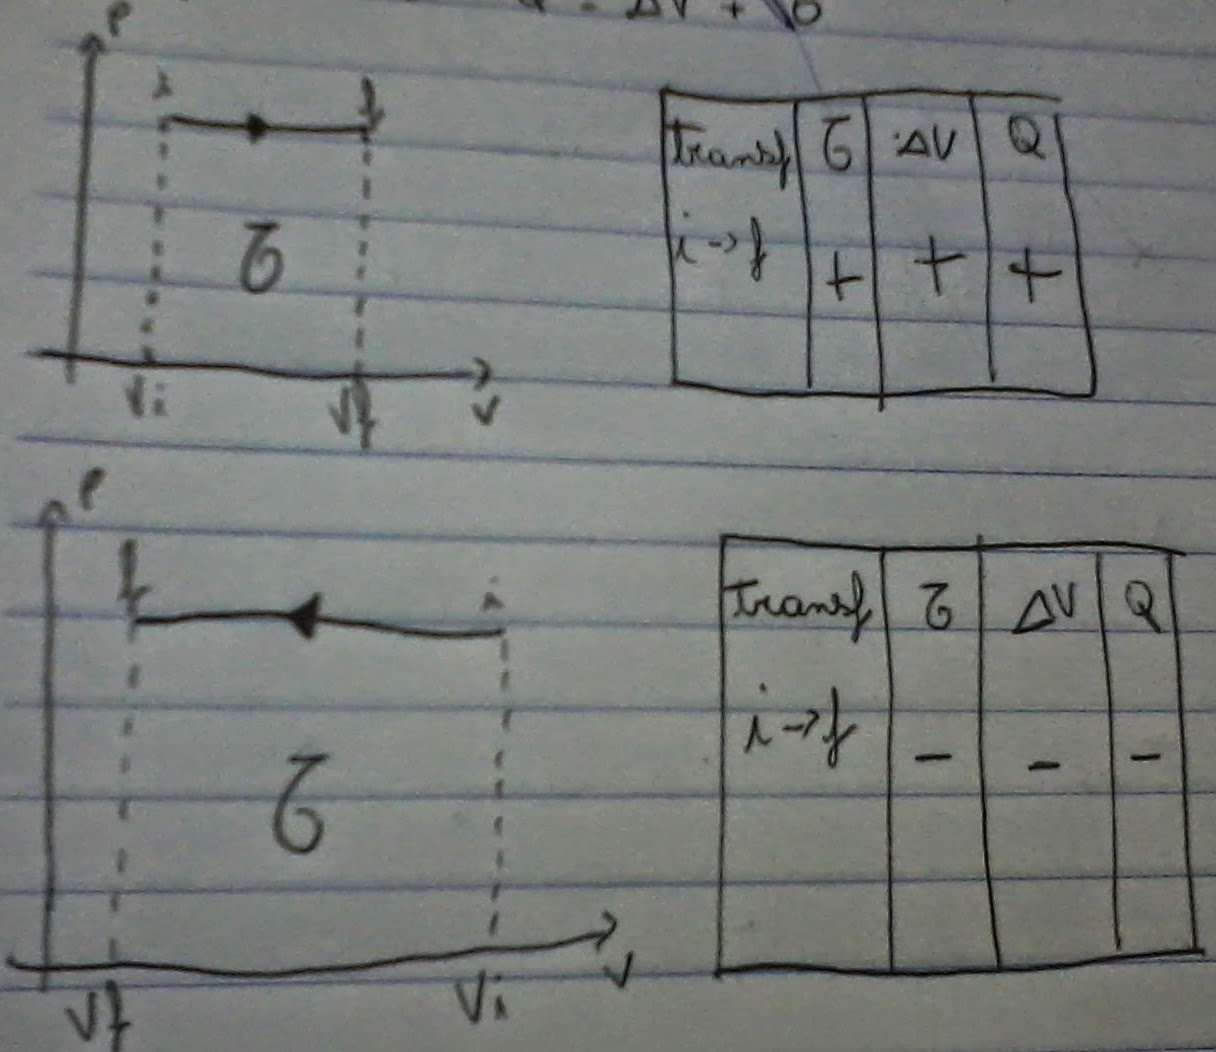 P
i f
ζ
Vi Vf V
transf ζ ΔV Q
i→f + + +
P
f i
ζ
Vf Vi V
transf ζ ΔV Q
i→f - - -